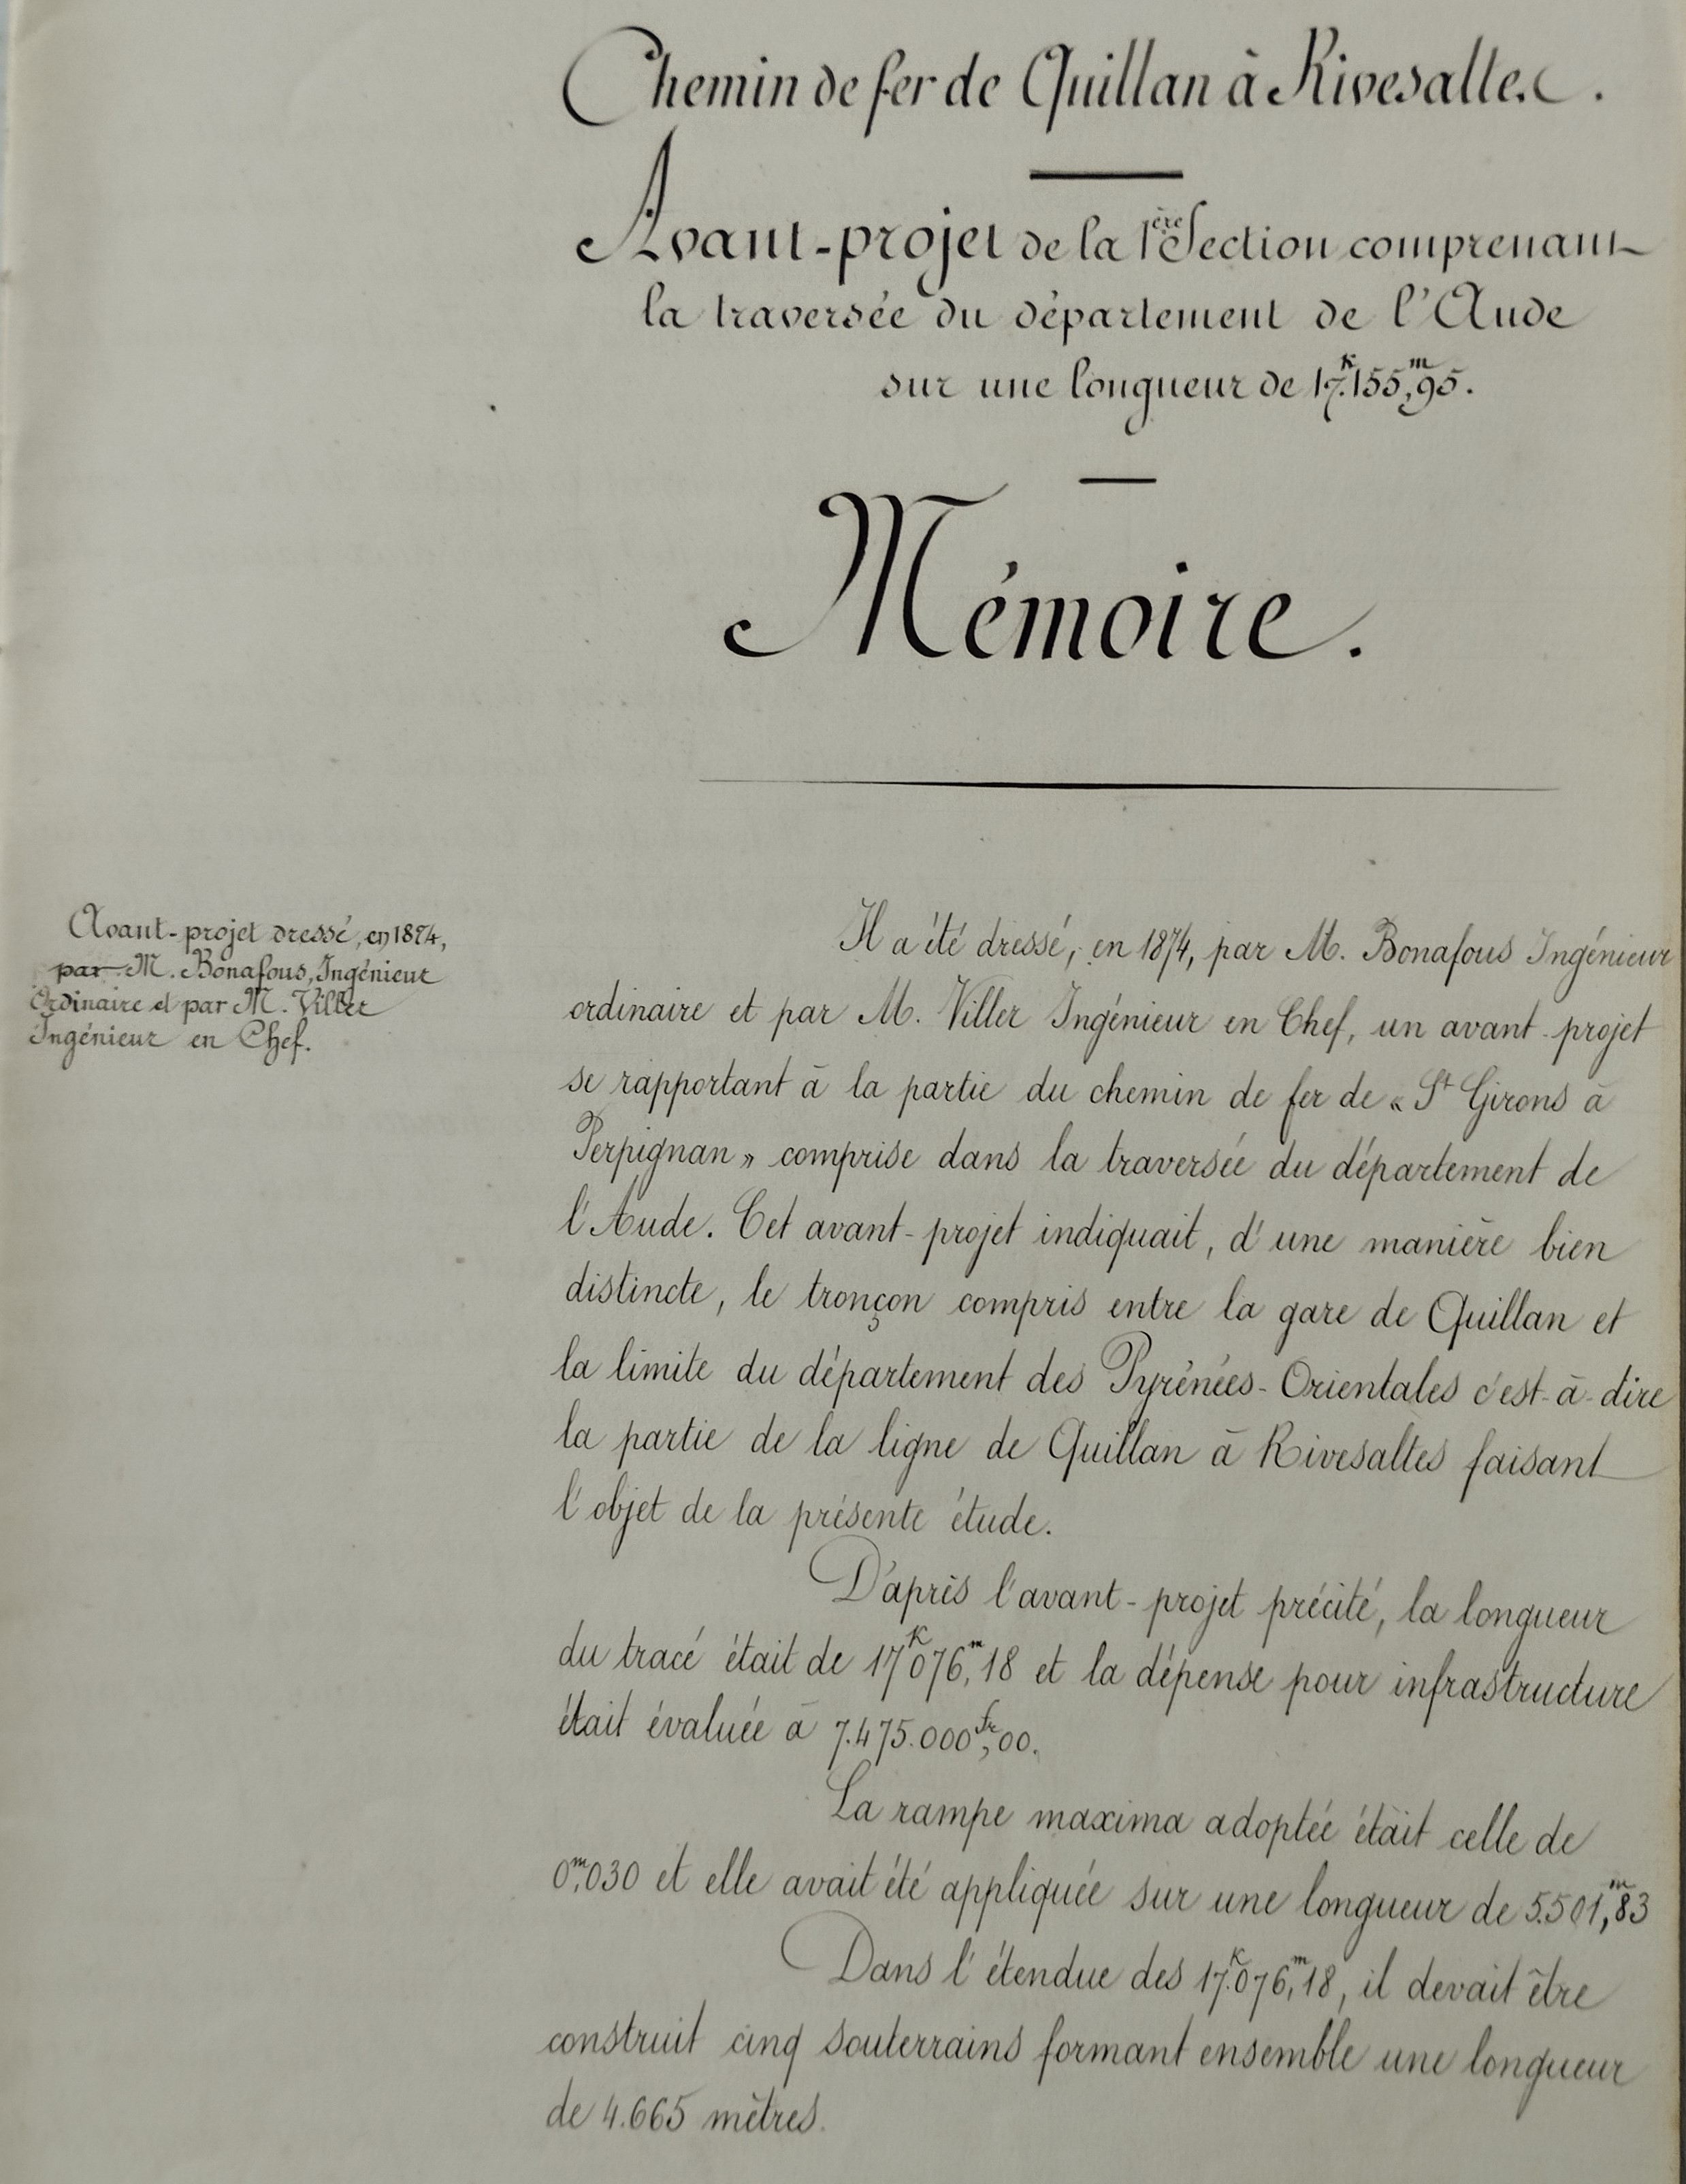 Chemin de fer de Quillan à Rivesaltes.
Avant-projet de la 1ère Section comprenant
la traversée du département de l'Aude
sur une longueur de 17.k155,m95.
Mémoire.
Avant-projet dressé, en 1874,
par M. Bonafous, Ingénieur
Ordinaire et par M. Viller
Ingénieur en Chef.
Il a été dressé, en 1874, par M. Bonafous Ingénieur
ordinaire et par M. Viller Ingénieur en Chef, un avant-projet
se rapportant à la partie du chemin de fer de « St Girons à
Perpignan » comprise dans la traversée du département de
l'Aude. Cet avant-projet indiquait, d'une manière bien
distincte, le tronçon compris entre la gare de Quillan et
la limite du département des Pyrénées-Orientales c'est-à-dire
la partie de la ligne de Quillan à Rivesaltes faisant
l'objet de la présente étude.
D'après l'avant-projet précité, la longueur
du tracé était de 17k076,m18 et la dépense pour infrastructure
était évaluée à 7.475.000fr,00.
La rampe maxima adoptée était celle de
0m,030 et elle avait été appliquée sur une longueur de 5.501,m83
Dans l'étendue des 17.k076,m18, il devait être
construit cinq souterrains formant ensemble une longueur
de 4.665 mètres.